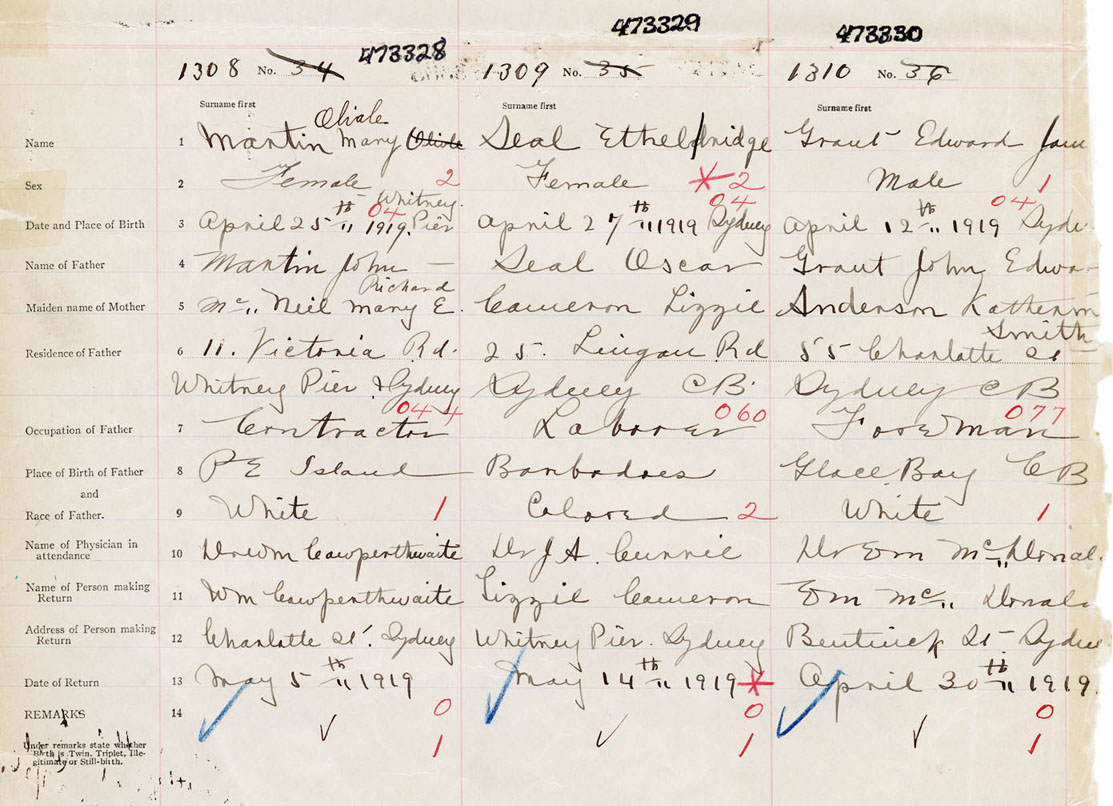 473328 473329 473330
1308 No. 34 1309 No. 35 1310 No. 36
Surname first Surname first Surname first
Oliale
Name 1 Martin Mary Seal Ethelbridge Grant Edward Jam
Sex 2 Female 2 Female 2 Male 1
Whitney 04 04 04
Date and Place of Birth 3 April 25th 1919 Pier April 27th 11 1919 Sydney April 12th 11 1919 Sydn
Name of Father 4 Martin John — Seal Oscar Grant John Edwar
Richard
Maiden name of Mother 5 Mc Neil Mary E. Cameron Lizzie Anderson Katherin
Smith
Residence of Father 6 11. Victoria Rd. 25. Lingan Rd 55 Charlotte St
Whitney Pier Sydney Sydney C B. Sydney C B
044 060 077
Occupation of Father 7 Contractor Laborer Foreman
Place of Birth of Father 8 P E Island Barbadoes Glace Bay C B
and
Race of Father. 9 White 1 Colored 2 White 1
Name of Physician in
attendance 10 Dr Wm Cowperthwaite Dr J A. Cunnie Dr E m McDonal
Name of Person making
Return 11 Wm Cowperthwaite Lizzie Cameron E m Mc Donald
Address of Person making
Return 12 Charlotte St. Sydney Whitney Pier. Sydney Bentinck St - Sydne
Date of Return 13 May 5th 11 1919 May 14th 11 1919 April 30th 11 1919.
REMARKS 14 0 0 0
Under remarks state whether
Birth is Twin, Triplet, Ille-
gitimate or Still-birth. 1 1 1